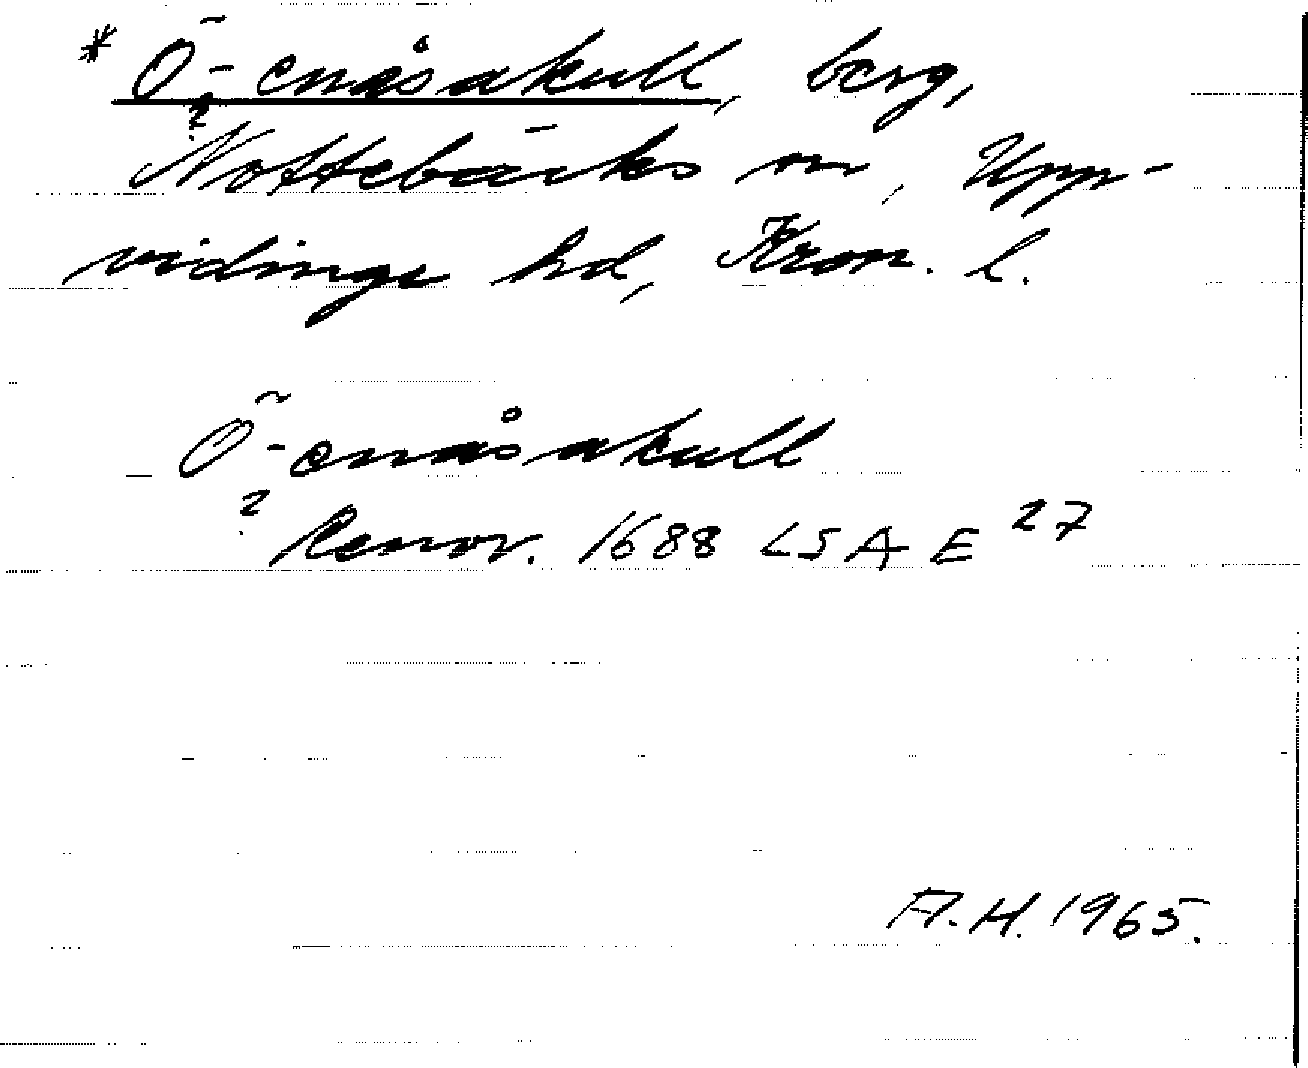 * Ö-enåsakull, berg,
?
Nottebäcks sn, Upp-
vidinge hd, Kron. l.
Ö-enåsakull
?
Renov. 1688 LSA E 27
A.H. 1965.